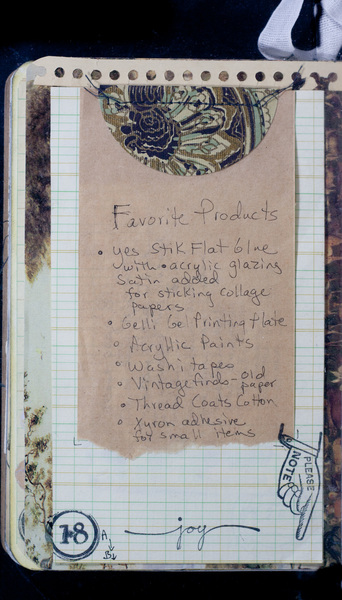 Favorite Products
• yes Stik Flat Glue
with • acrylic glazing
Satin added
for sticking collage
papers
• Gelli Gel Printing Plate
• Acryllic Paints
• Washi tapes
• Vintage finds - old
paper
• Thread Coats Cotton
• Xyron adhesive
for small items
PLEASE
NOTE
18
A
B
joy